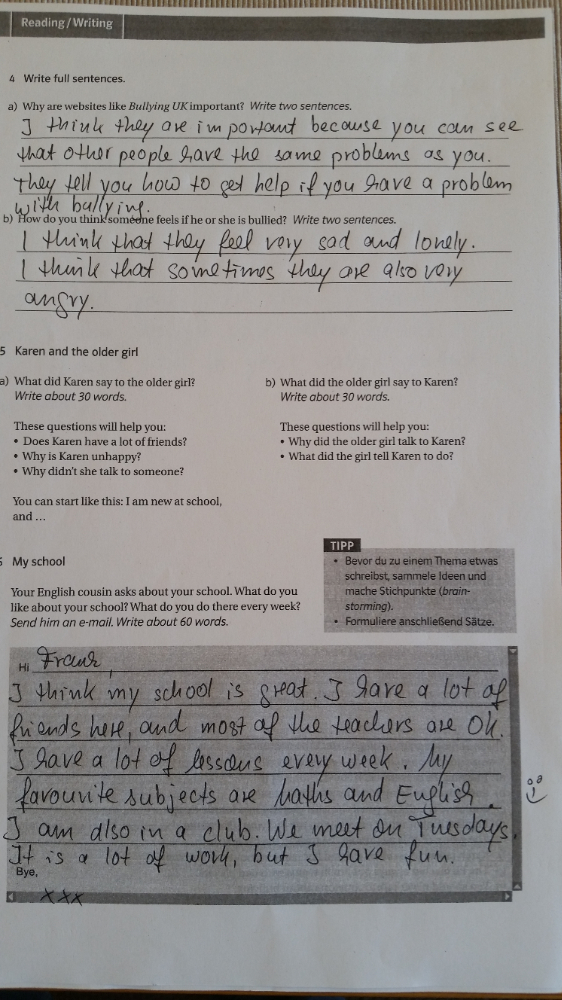 Reading/Writing
4 Write full sentences.
a) Why are websites like Bullying UK important? Write two sentences.
I think they are important because you can see
that other people have the same problems as you.
They tell you how to get help if you have a problem
with bullying.
b) How do you think someone feels if he or she is bullied? Write two sentences.
I think that they feel very sad and lonely.
I think that sometimes they are also very
angry.
5 Karen and the older girl
a) What did Karen say to the older girl?
Write about 30 words.
These questions will help you:
• Does Karen have a lot of friends?
• Why is Karen unhappy?
• Why didn't she talk to someone?
You can start like this: I am new at school,
and ...
b) What did the older girl say to Karen?
Write about 30 words.
These questions will help you:
• Why did the older girl talk to Karen?
• What did the girl tell Karen to do?
6 My school
Your English cousin asks about your school. What do you
like about your school? What do you do there every week?
Send him an e-mail. Write about 60 words.
TIPP
• Bevor du zu einem Thema etwas
schreibst, sammele Ideen und
mache Stichpunkte (brain-
storming).
• Formuliere anschließend Sätze.
Hi Frank,
I think my school is great. I have a lot of
friends here, and most of the teachers are OK.
I have a lot of lessons every week. My
favourite subjects are Maths and English.
I am also in a club. We meet on Tuesdays.
It is a lot of work, but I have fun.
Bye,
xxx